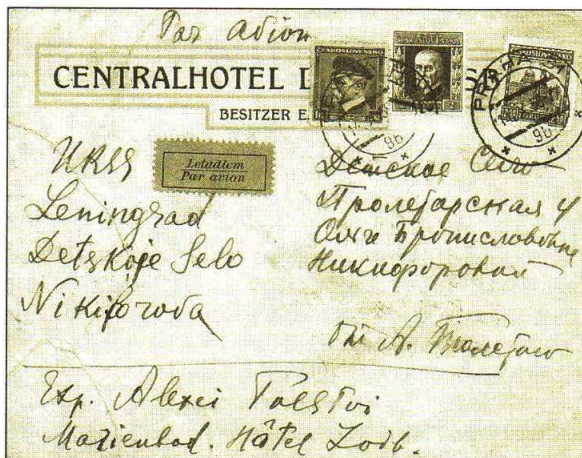 Par avion
CENTRALHOTEL
BESITZER E.
ČESKOSLOVENSKO
PRAHA
96
96
Letadlem
Par avion
URSS
Leningrad
Detskoje Selo
Nikiforova
Детское Село
Пролетарская 4
Ольге Брониславовне
Никифоровой
от А. Толстого
Exp. Alexei Tolstoi
Marienbad. Hôtel